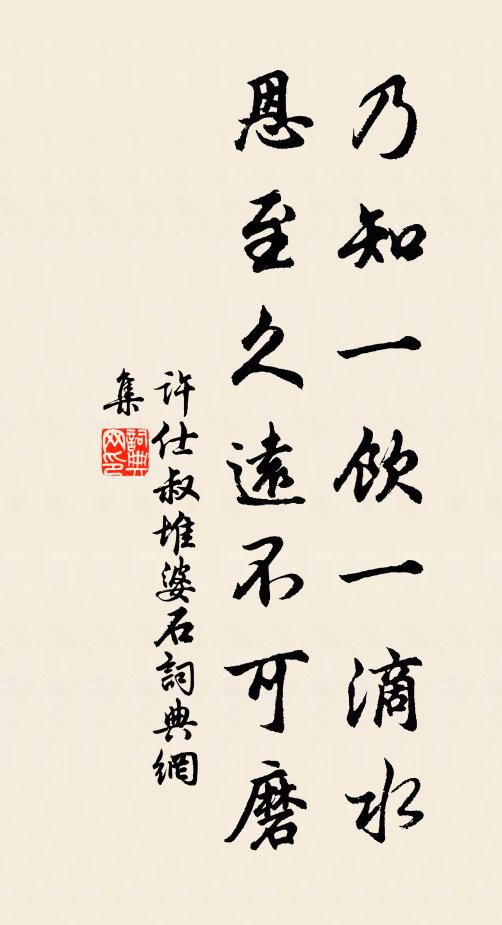 乃知一飲一滴水
恩至久遠不可磨
許仕叔堆婆石詞典網
集
詞典
网印